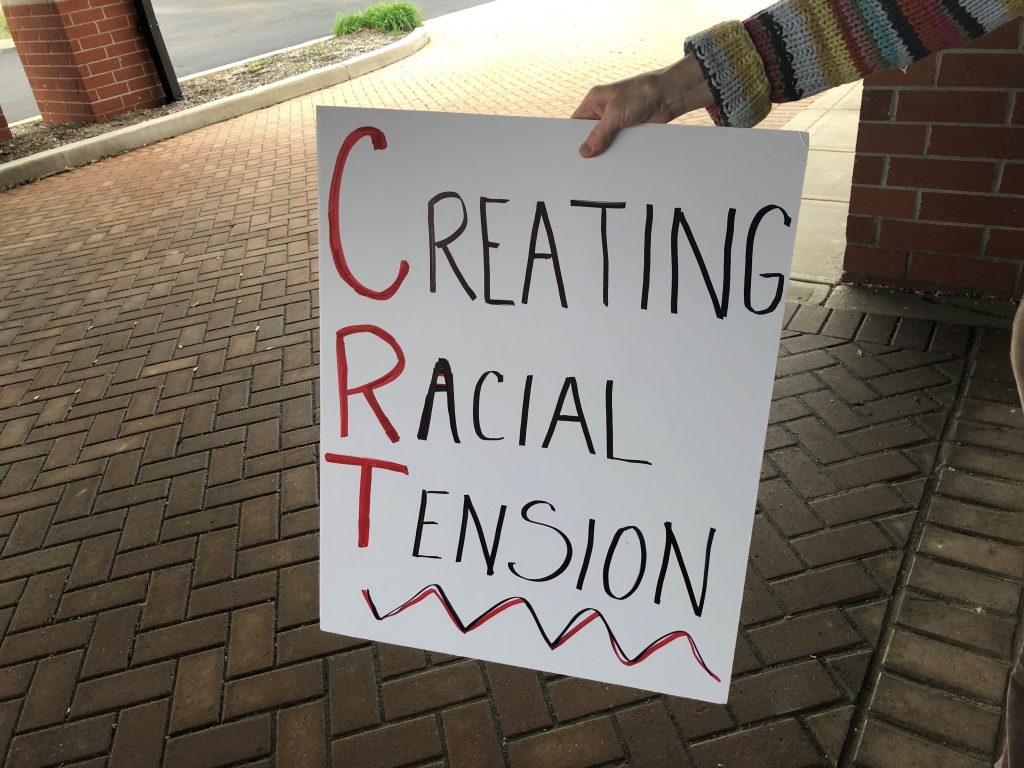 C CREATING
R RACIAL
T TENSION